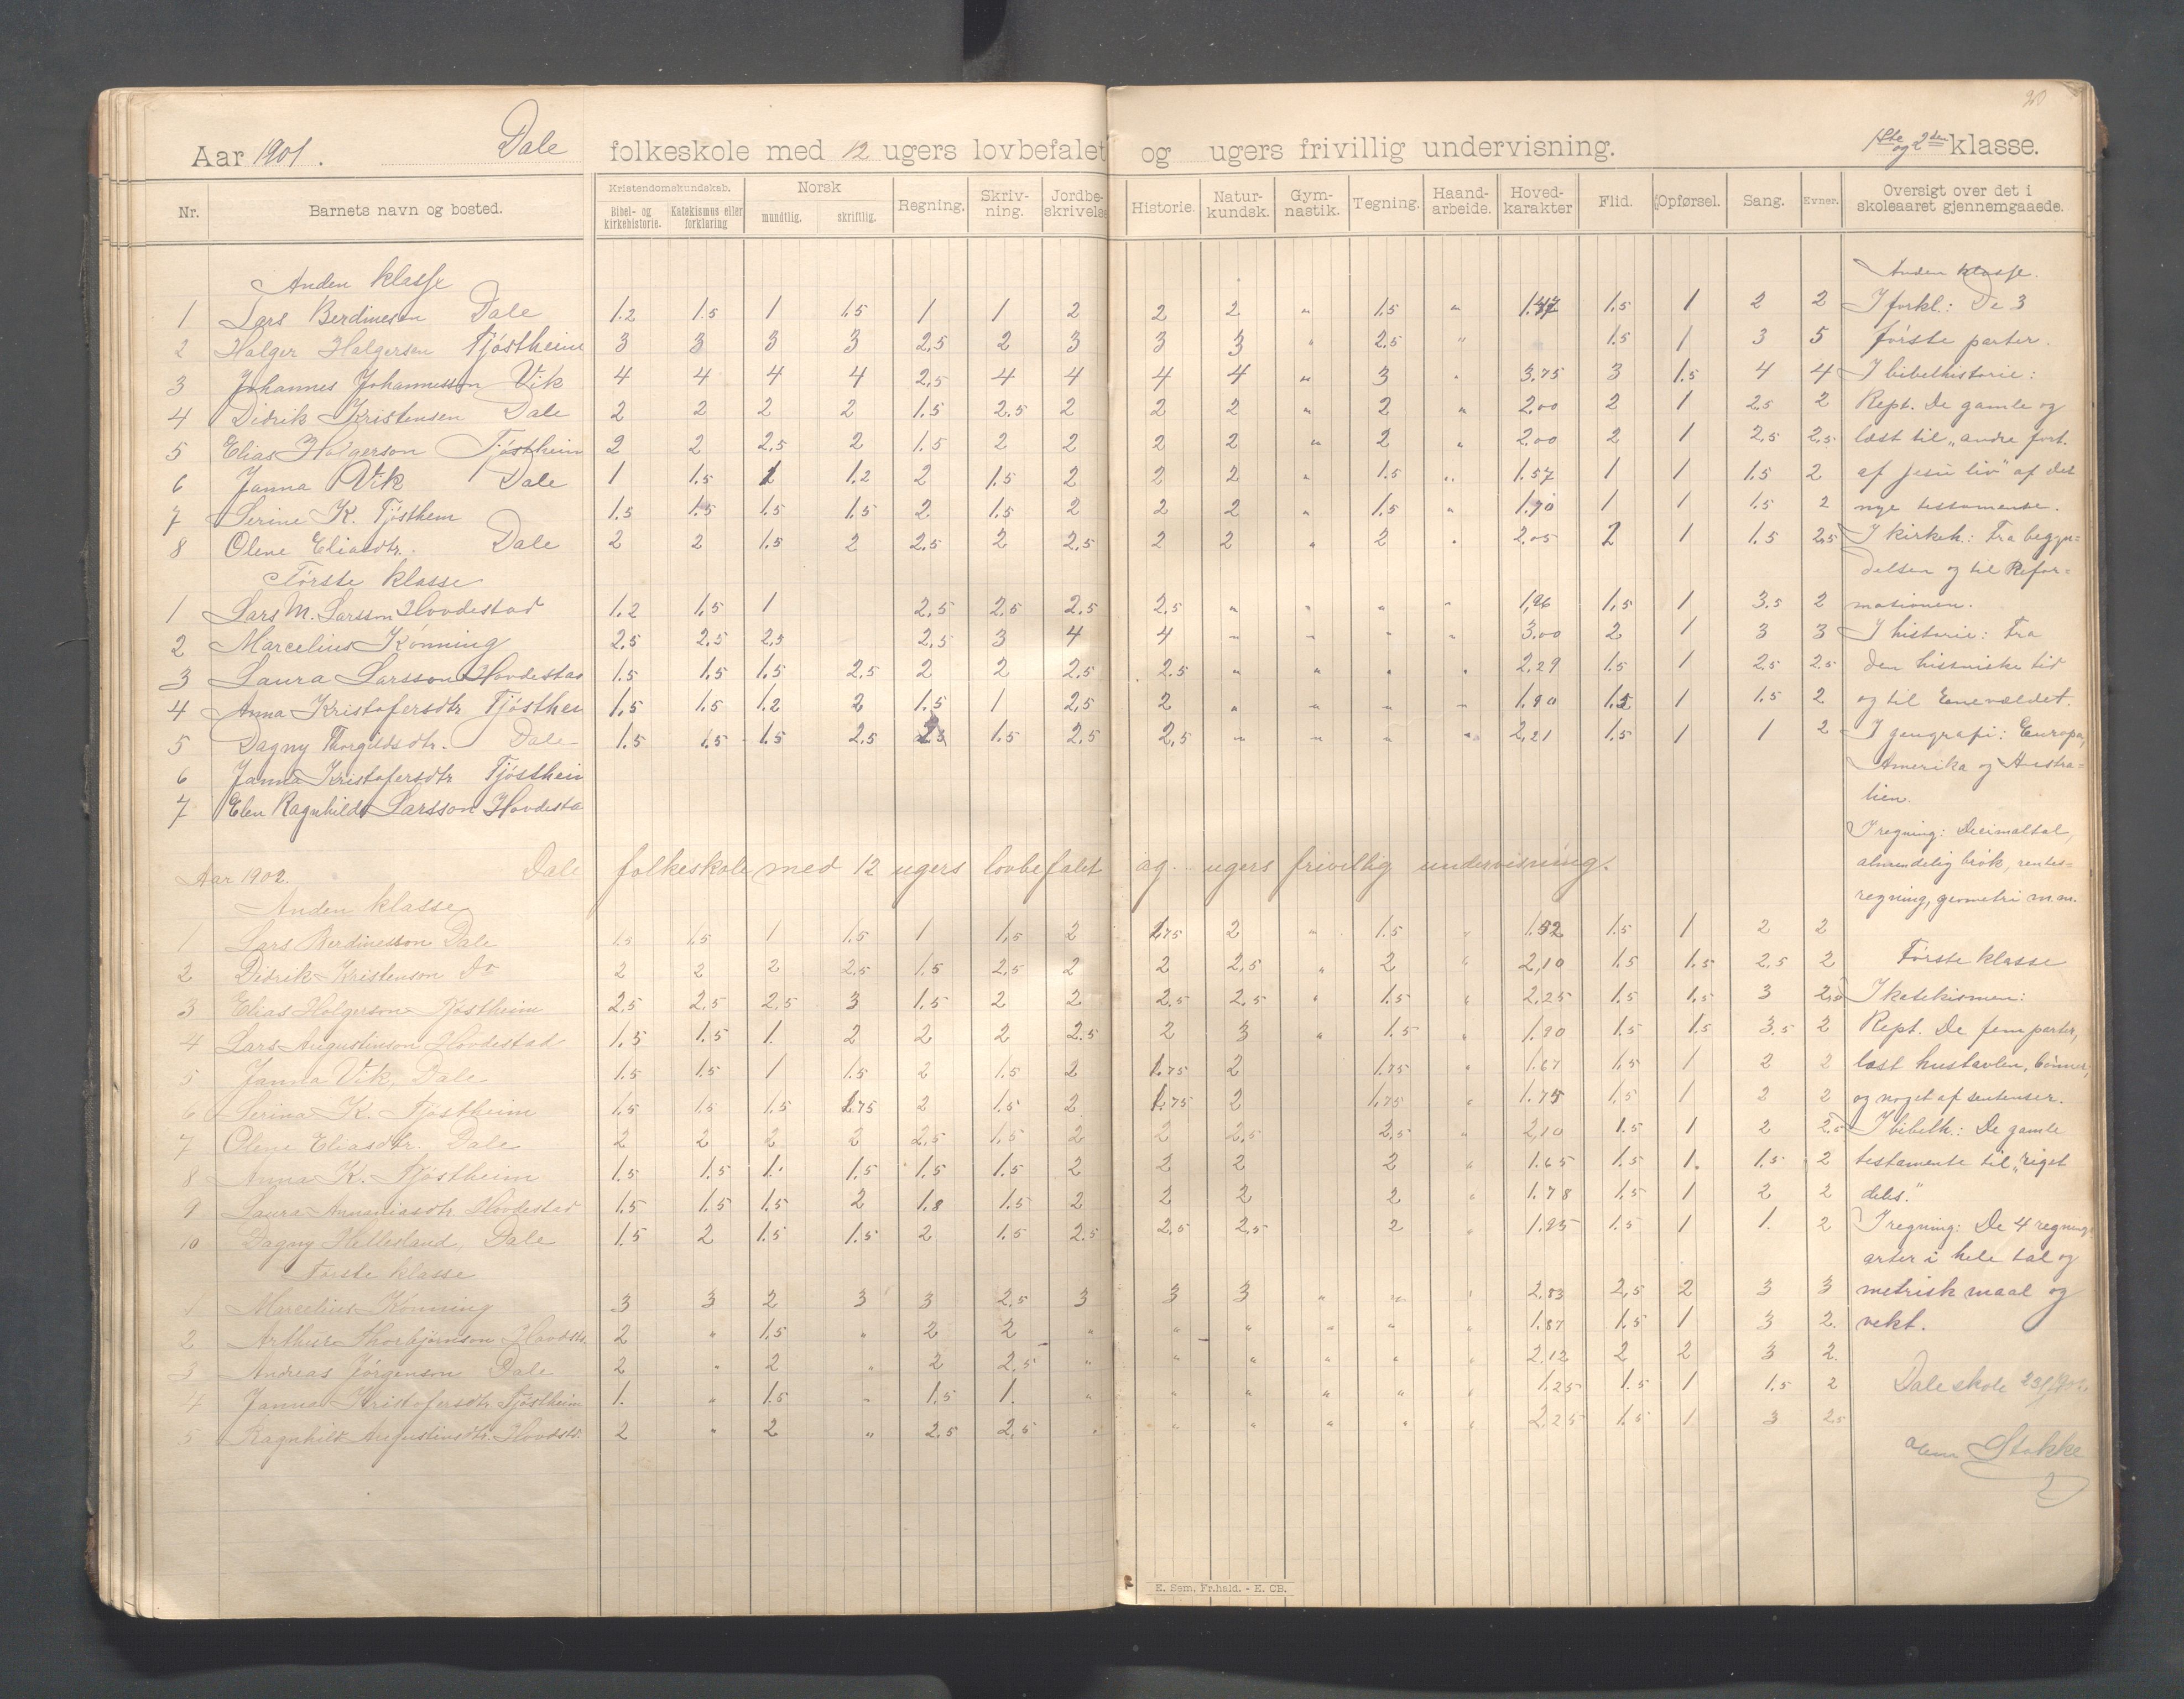 20
Aar 1901. Dale folkeskole med 12 ugers lovbefalet og ugers frivillig undervisning. 1ste og 2den klasse.
Nr. Barnets navn og bosted. Kristendomskundskab. Bibel- og kirkehistorie. Katekismus eller forklaring Norsk mundtlig. skriftlig. Regning. Skriv-ning. Jordbe-skrivelse Historie. Natur-kundsk. Gym-nastik. Tegning. Haand-arbeide. Hoved-karakter Flid. Opførsel. Sang. Evner. Oversigt over det i skoleaaret gjennemgaaede.
Anden klasse
1 Lars Berdinesen Dale 1.2 1.5 1 1.5 1 1 2 2 2 " 1.5 " 1.47 1.5 1 2 2
2 Holger Holgersen Tjøstheim 3 3 3 3 2,5 2 3 3 3 " 2.5 " 1.5 1 3 5
3 Johannes Johannesson Vik 4 4 4 4 2,5 4 4 4 4 " 3 " 3.75 3 1.5 4 4
4 Didrik Kristensen Dale 2 2 2 2 1.5 2.5 2 2 2 " 2 " 2.00 2 1 2.5 2
5 Elias Holgerson Tjøstheim 2 2 2,5 2 1.5 2 2 2 2 " 2 " 2.00 2 1 2.5 2.5
6 Janna Vik Dale 1 1.5 1 1.2 2 1.5 2 2 2 " 1.5 " 1.57 1 1 1.5 2
7 Serine K. Tjøsthem 1.5 1.5 1.5 1.5 2 1.5 2 2 2 " 1.5 " 1.70 1 1 1.5 2
8 Olene Eliasdtr. Dale 2 2 1.5 2 2,5 2 2,5 2 2 " 2 " 2.05 2 1 1.5 2.5
Første klasse
1 Lars M. Larsson Hovdestad 1.2 1.5 1 2,5 2.5 2.5 2.5 " " " " 1,96 1,5 1 3.5 2
2 Marcelius Kønning 2,5 2,5 2,5 2,5 3 4 4 " " " " 3.00 2 1 3 3
3 Laura Larsson Hovdestad 1.5 1.5 1.5 2.5 2 2 2.5 2.5 " " " " 2,29 1.5 1 2.5 2.5
4 Anna Kristofersdtr Tjøsthei 1,5 1.5 1.2 2 1.5 1 2,5 2 " " " " 1,90 1.5 1 1.5 2
5 Dagny Thorgilsdtr. Dale 1.5 1.5 1.5 2.5 2.5 1.5 2,5 2,5 " " " " 2,21 1.5 1 1 2
6 Janna Kristofersdtr Tjøsthei
7 Elen Ragnhild Larsson Hovdesta
Aar 1902. Dale folkeskole med 12 ugers lovbefalet og ugers frivillig undervisning.
Anden klasse
1 Lars Berdinesson Dale 1.5 1.5 1 1.5 1 1,5 2 1.75 2 " 1.5 " 1.52 1.5 1 2 2
2 Didrik Kristenson Do 2 2 2 2.5 1.5 2.5 2 2 2,5 " 2 " 2,10 1.5 1.5 2.5 2
3 Elias Holgerson Tjøstheim 2,5 2.5 2.5 3 1.5 2 2 2.5 2.5 " 1.5 " 2.25 1.5 1,5 3 2.5
4 Lars Augustinson Hovdestad 1.5 1.5 1. 2 2 2 2.5 2 3 " 1.5 " 1.90 1.5 1.5 3.5 2
5 Janna Vik, Dale 1.5 1.5 1 1.5 2 1.5 2 1.75 2 1.75 " 1.67 1.5 1 2 2
6 Serina K. Tjøstheim 1.5 1.5 1.5 1.75 2 1.5 2 1.75 2 1.75 " 1.75 1.5 1 2 2
7 Olene Eliasdtr. Dale 2 2 2 2 2.5 1.5 2 2 2,5 2,5 " 2,10 1.5 1 2 2.5
8 Anna K. Tjøstheim 1.5 1.5 1. 1.5 1.5 1.5 2 2 2 2 " 1.65 1.5 1. 1.5 2
9 Laura Annaniasdtr Hovdestad 1.5 1.5 1.5 2 1.8 1.5 2 2 2 2 " 1.78 1.5 1 2 2
10 Dagny Hellesland, Dale 1.5 2 1.5 1.5 2 1.5 2.5 2.5 2.5 2 " 1.95 1.5 1 1. 2
Første klasse
1 Marcelius Kønning 3 3 2 3 3 2.5 3 3 3 " " " 2.83 2,5 2 3 3
2 Arthur Thorbjørnson Hovdsta. 2 " 1.5 " 2 2 " " " " " " 1.87 1.5 1 3 2.
3 Andreas Jørgenson Dale 2 " 2 " 2 2.5 " " " " " " 2.12 2 2 3 2.
4 Janna Kristofersdtr Tjøstheim 1. " 1.5 " 1.5 1. " " " " " " 1.25 1.5 1 1.5 2
5 Ragnhild Augustinsdtr. Hovdsta. 2 " 2 " 2.5 2,5 " " " " " " 2,25 1.5 1 3 2.5
Anden klasse.
I forkl.: De 3
første parter.
I bibelhistorie:
Rept. De gamle og
læst til "andre fort.
af Jesu liv" af det
nye testamente.
I kirkeh.: Fra begyn=
delsen og til Refor=
mationen.
I historie: Fra
den historiske tid
og til Enevældet.
I geografi: Europa,
Amerika og Austra=
lien.
I regning: Decimaltal,
almindelig brøk, rentes=
regning, geometri m.m.
Første klasse
I katekismen:
Rept. De fem parter,
læst hustavlen, bønner,
og noget af sentenser.
I bibelh.: De gamle
testamente til "riget
deles."
I regning: De 4 regnings
arter i hele tal og
metrisk maal og
vekt.
Dale skole
Stokke
E. Sem, Fr.hald. - E. CB.